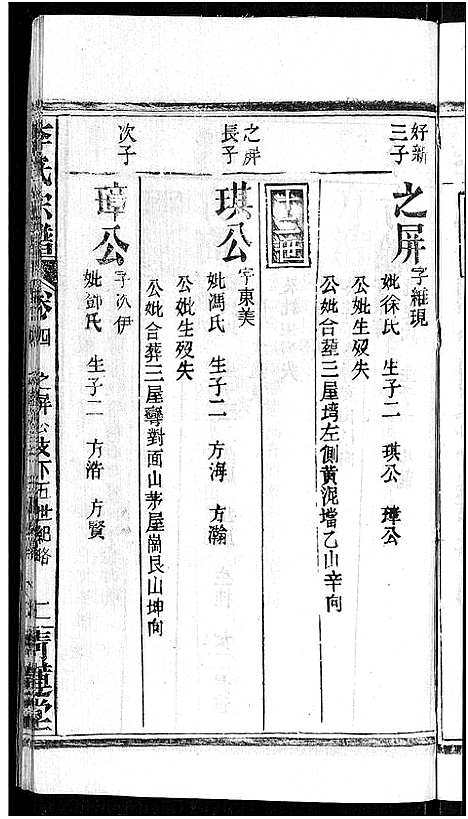 好新三子
之屏字維現
妣徐氏 生子二 琪公 璋公
公妣生歿失
公妣合塟三屋塆左側黃泥壋乙山辛向
十二世
之屏長子
琪公字東美
妣馮氏 生子二 方海 方瀚
公妣生歿失
公妣合葬三屋彎對面山茅屋崗艮山坤向
次子
璋公字次伊
妣鄧氏 生子二 方浩 方賢
李氏宗譜 卷四 之屏公支下五世紀略 二 青蓮堂